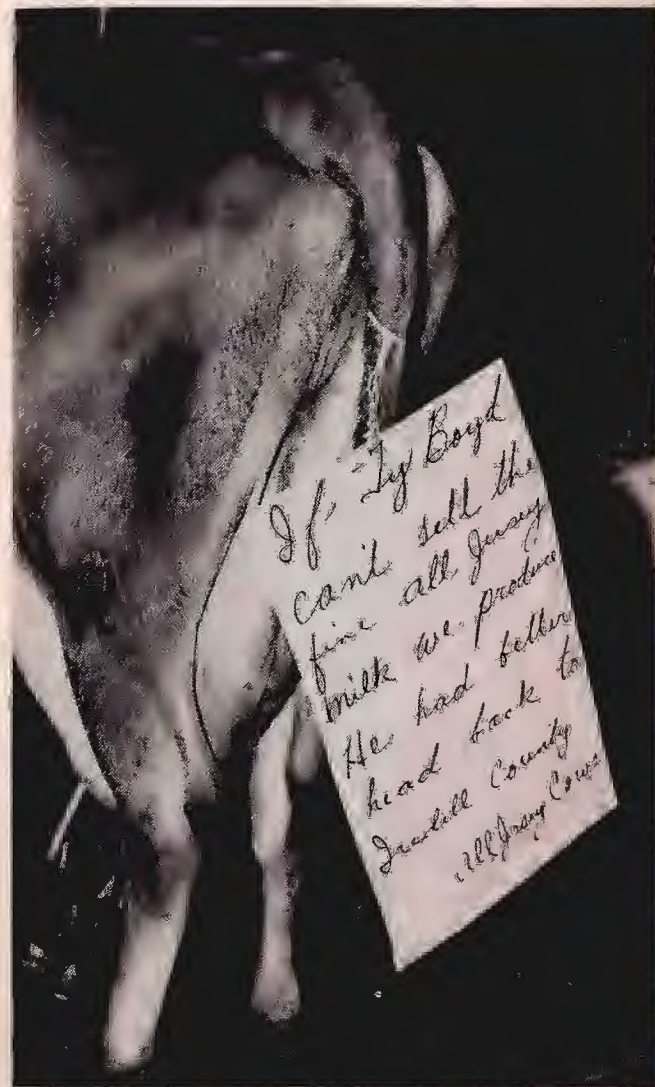 If Ty Boyd
can't sell the
fine all Jersey
milk we produce
He had better
head back to
Iredell County
All Jersey Cows